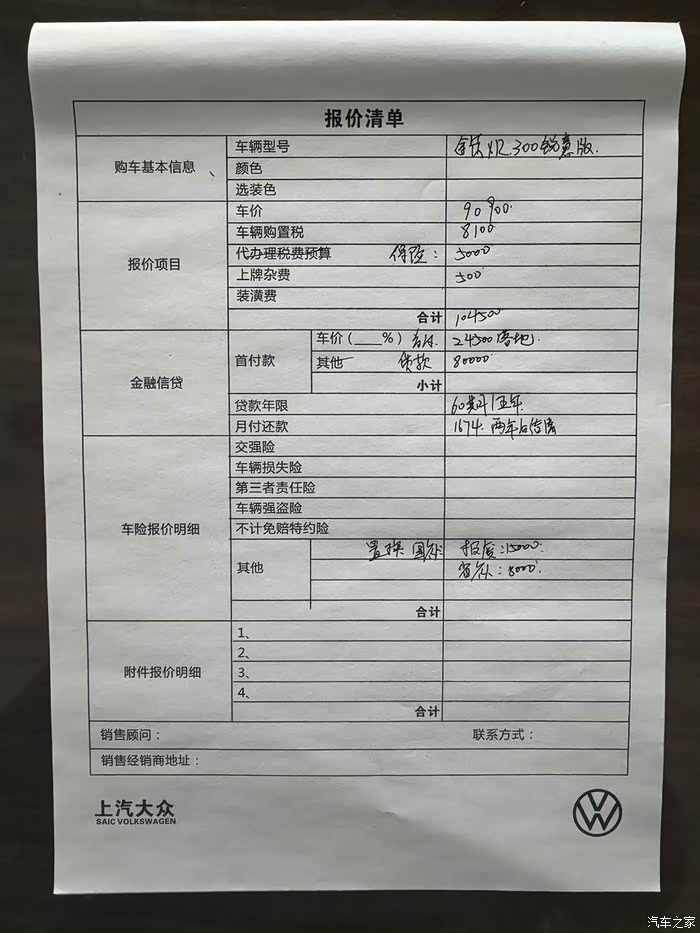 报价清单
购车基本信息
车辆型号 途岳 300锐意版.
颜色
选装色
报价项目
车价 90900.
车辆购置税 8100
代办理税费预算 保险： 5000
上牌杂费 500
装潢费
合计 104500
金融信贷
首付款
车价（___%）首付. 24500落地.
其他 贷款 80000
小计
贷款年限 60期/五年.
月付还款 1674. 两年后结清
车险报价明细
交强险
车辆损失险
第三者责任险
车辆强盗险
不计免赔特约险
其他
置换 国补: 报废:15000.
省补:8000.
合计
附件报价明细
1、
2、
3、
4、
合计
销售顾问： 联系方式：
销售经销商地址：
上汽大众
SAIC VOLKSWAGEN
汽车之家